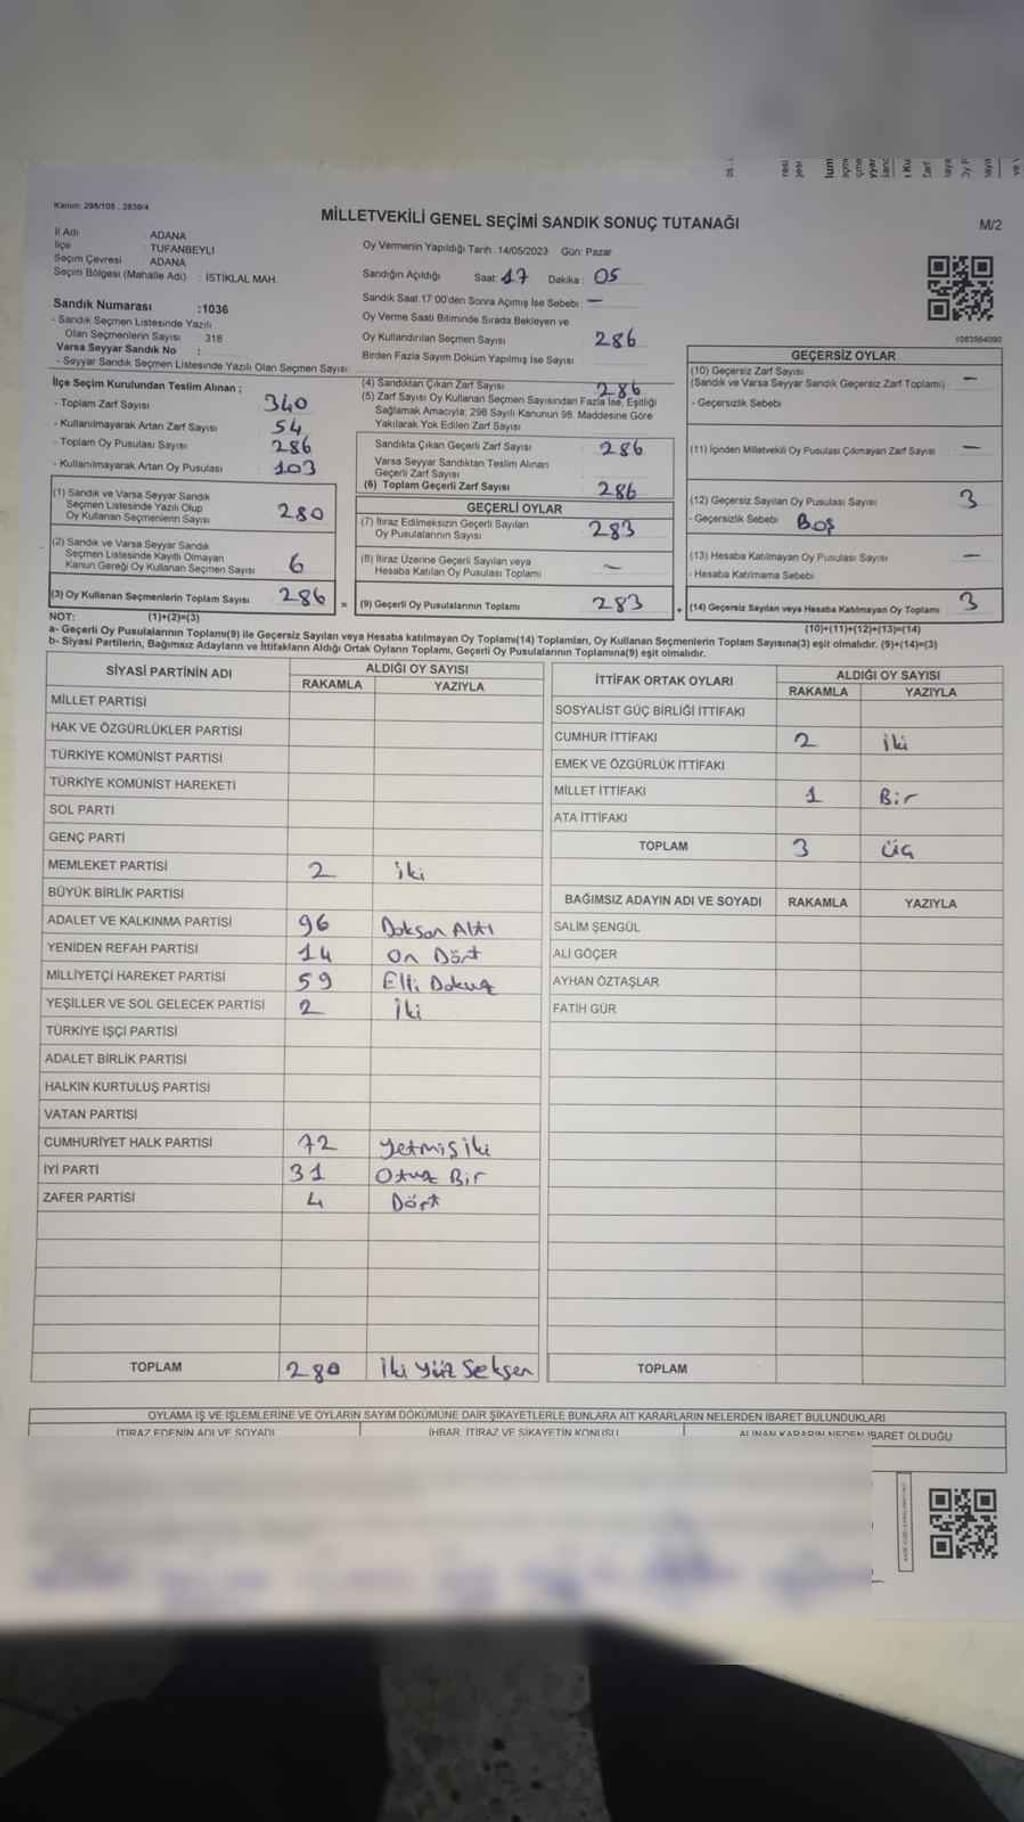 Kanun: 298/105 , 2839/4
MİLLETVEKİLİ GENEL SEÇİMİ SANDIK SONUÇ TUTANAĞI
M/2
İl Adı ADANA
İlçe TUFANBEYLİ
Seçim Çevresi ADANA
Seçim Bölgesi (Mahalle Adı) : İSTİKLAL MAH.
Oy Vermenin Yapıldığı Tarih: 14/05/2023 Gün: Pazar
Sandığın Açıldığı Saat: 17 Dakika: 05
Sandık Saat 17:00'den Sonra Açılmış İse Sebebi: —
Oy Verme Saati Bitiminde Sırada Bekleyen ve
Oy Kullandırılan Seçmen Sayısı 286
Birden Fazla Sayım Döküm Yapılmış İse Sayısı
Sandık Numarası :1036
- Sandık Seçmen Listesinde Yazılı
Olan Seçmenlerin Sayısı 318
Varsa Seyyar Sandık No :
- Seyyar Sandık Seçmen Listesinde Yazılı Olan Seçmen Sayısı
İlçe Seçim Kurulundan Teslim Alınan ;
- Toplam Zarf Sayısı 340
- Kullanılmayarak Artan Zarf Sayısı 54
- Toplam Oy Pusulası Sayısı 286
- Kullanılmayarak Artan Oy Pusulası 103
(1) Sandık ve Varsa Seyyar Sandık
Seçmen Listesinde Yazılı Olup
Oy Kullanan Seçmenlerin Sayısı 280
(2) Sandık ve Varsa Seyyar Sandık
Seçmen Listesinde Kayıtlı Olmayan
Kanun Gereği Oy Kullanan Seçmen Sayısı 6
(3) Oy Kullanan Seçmenlerin Toplam Sayısı 286
(4) Sandıktan Çıkan Zarf Sayısı 286
(5) Zarf Sayısı Oy Kullanan Seçmen Sayısından Fazla İse, Eşitliği
Sağlamak Amacıyla, 298 Sayılı Kanunun 98. Maddesine Göre
Yakılarak Yok Edilen Zarf Sayısı
Sandıkta Çıkan Geçerli Zarf Sayısı 286
Varsa Seyyar Sandıktan Teslim Alınan
Geçerli Zarf Sayısı
(6) Toplam Geçerli Zarf Sayısı 286
GEÇERLİ OYLAR
(7) İtiraz Edilmeksizin Geçerli Sayılan
Oy Pusulalarının Sayısı 283
(8) İtiraz Üzerine Geçerli Sayılan veya
Hesaba Katılan Oy Pusulası Toplamı —
= (9) Geçerli Oy Pusulalarının Toplamı 283
GEÇERSİZ OYLAR
(10) Geçersiz Zarf Sayısı
(Sandık ve Varsa Seyyar Sandık Geçersiz Zarf Toplamı) —
- Geçersizlik Sebebi
(11) İçinden Milletvekili Oy Pusulası Çıkmayan Zarf Sayısı —
(12) Geçersiz Sayılan Oy Pusulası Sayısı 3
- Geçersizlik Sebebi Boş
(13) Hesaba Katılmayan Oy Pusulası Sayısı —
- Hesaba Katılmama Sebebi
+ (14) Geçersiz Sayılan veya Hesaba Katılmayan Oy Toplamı 3
NOT: (1)+(2)=(3)
(10)+(11)+(12)+(13)=(14)
a- Geçerli Oy Pusulalarının Toplamı(9) ile Geçersiz Sayılan veya Hesaba katılmayan Oy Toplamı(14) Toplamları, Oy Kullanan Seçmenlerin Toplam Sayısına(3) eşit olmalıdır. (9)+(14)=(3)
b- Siyasi Partilerin, Bağımsız Adayların ve İttifakların Aldığı Ortak Oyların Toplamı, Geçerli Oy Pusulalarının Toplamına(9) eşit olmalıdır.
SİYASİ PARTİNİN ADI ALDIĞI OY SAYISI
RAKAMLA YAZIYLA
MİLLET PARTİSİ
HAK VE ÖZGÜRLÜKLER PARTİSİ
TÜRKİYE KOMÜNİST PARTİSİ
TÜRKİYE KOMÜNİST HAREKETİ
SOL PARTİ
GENÇ PARTİ
MEMLEKET PARTİSİ 2 iki
BÜYÜK BİRLİK PARTİSİ
ADALET VE KALKINMA PARTİSİ 96 Doksan Altı
YENİDEN REFAH PARTİSİ 14 On Dört
MİLLİYETÇİ HAREKET PARTİSİ 59 Elli Dokuz
YEŞİLLER VE SOL GELECEK PARTİSİ 2 İki
TÜRKİYE İŞÇİ PARTİSİ
ADALET BİRLİK PARTİSİ
HALKIN KURTULUŞ PARTİSİ
VATAN PARTİSİ
CUMHURİYET HALK PARTİSİ 72 Yetmiş iki
İYİ PARTİ 31 Otuz Bir
ZAFER PARTİSİ 4 Dört
TOPLAM 280 İki Yüz Seksen
İTTİFAK ORTAK OYLARI ALDIĞI OY SAYISI
RAKAMLA YAZIYLA
SOSYALİST GÜÇ BİRLİĞİ İTTİFAKI
CUMHUR İTTİFAKI 2 iki
EMEK VE ÖZGÜRLÜK İTTİFAKI
MİLLET İTTİFAKI 1 Bir
ATA İTTİFAKI
TOPLAM 3 üç
BAĞIMSIZ ADAYIN ADI VE SOYADI RAKAMLA YAZIYLA
SALİM ŞENGÜL
ALİ GÖÇER
AYHAN ÖZTAŞLAR
FATİH GÜR
TOPLAM
OYLAMA İŞ VE İŞLEMLERİNE VE OYLARIN SAYIM DÖKÜMÜNE DAİR ŞİKAYETLERLE BUNLARA AİT KARARLARIN NELERDEN İBARET BULUNDUKLARI
İTİRAZ EDENİN ADI VE SOYADI İHBAR, İTİRAZ VE ŞİKAYETİN KONUSU ALINAN KARARIN NEDEN İBARET OLDUĞU